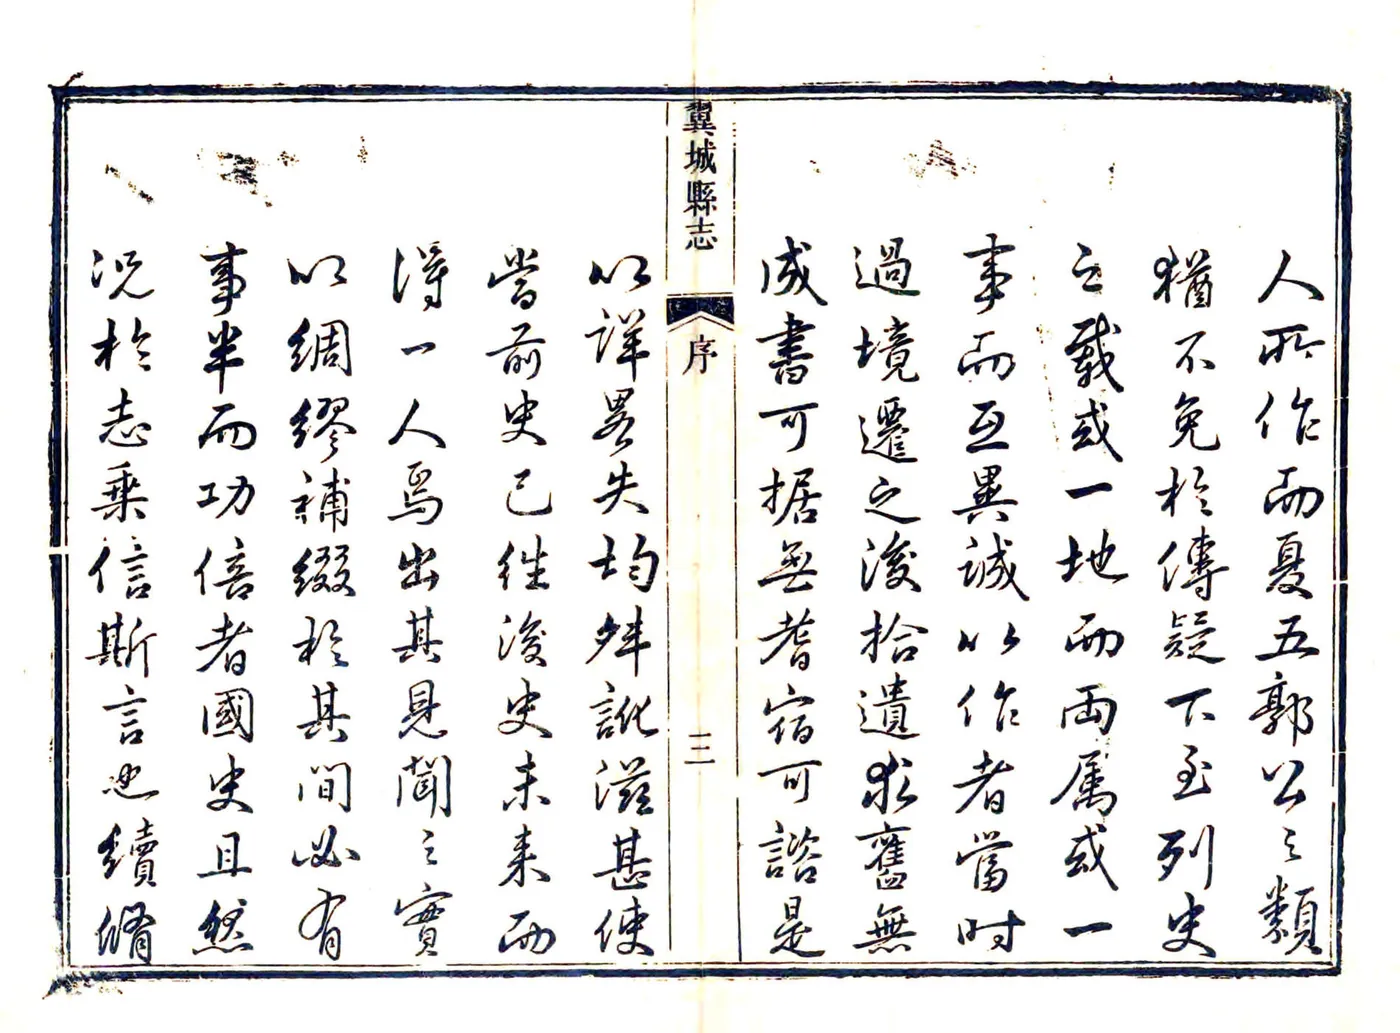 人所作而夏五郭公之類
猶不免於傳疑下至列史
之載或一地而両属或一
事而互異誠以作者當時
過境遷之後拾遺求舊無
成書可据無耆宿可諮是
翼城縣志
序
三
以詳畧失均舛訛滋甚使
當前史已徃後史未来而
得一人焉出其見聞之實
以綢繆補綴於其間必有
事半而功倍者國史且然
况於志乘信斯言也續脩